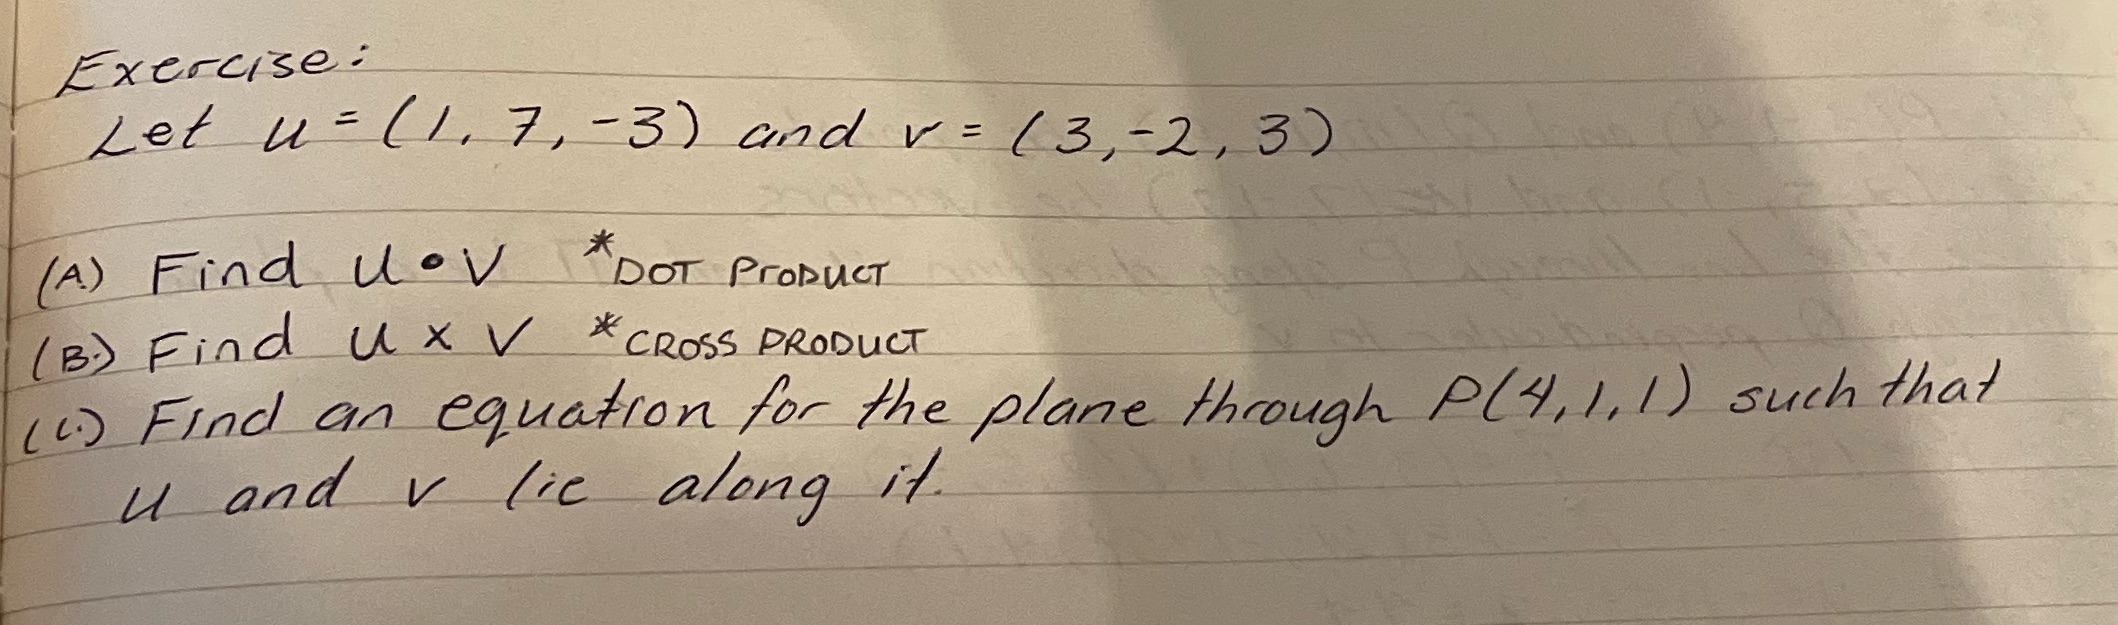 Exercise:
Let u = (1, 7, -3) and v = (3, -2, 3)
(A.) Find u • v *DOT PRODUCT
(B.) Find u x v *CROSS PRODUCT
(C.) Find an equation for the plane through P(4, 1, 1) such that
u and v lie along it.